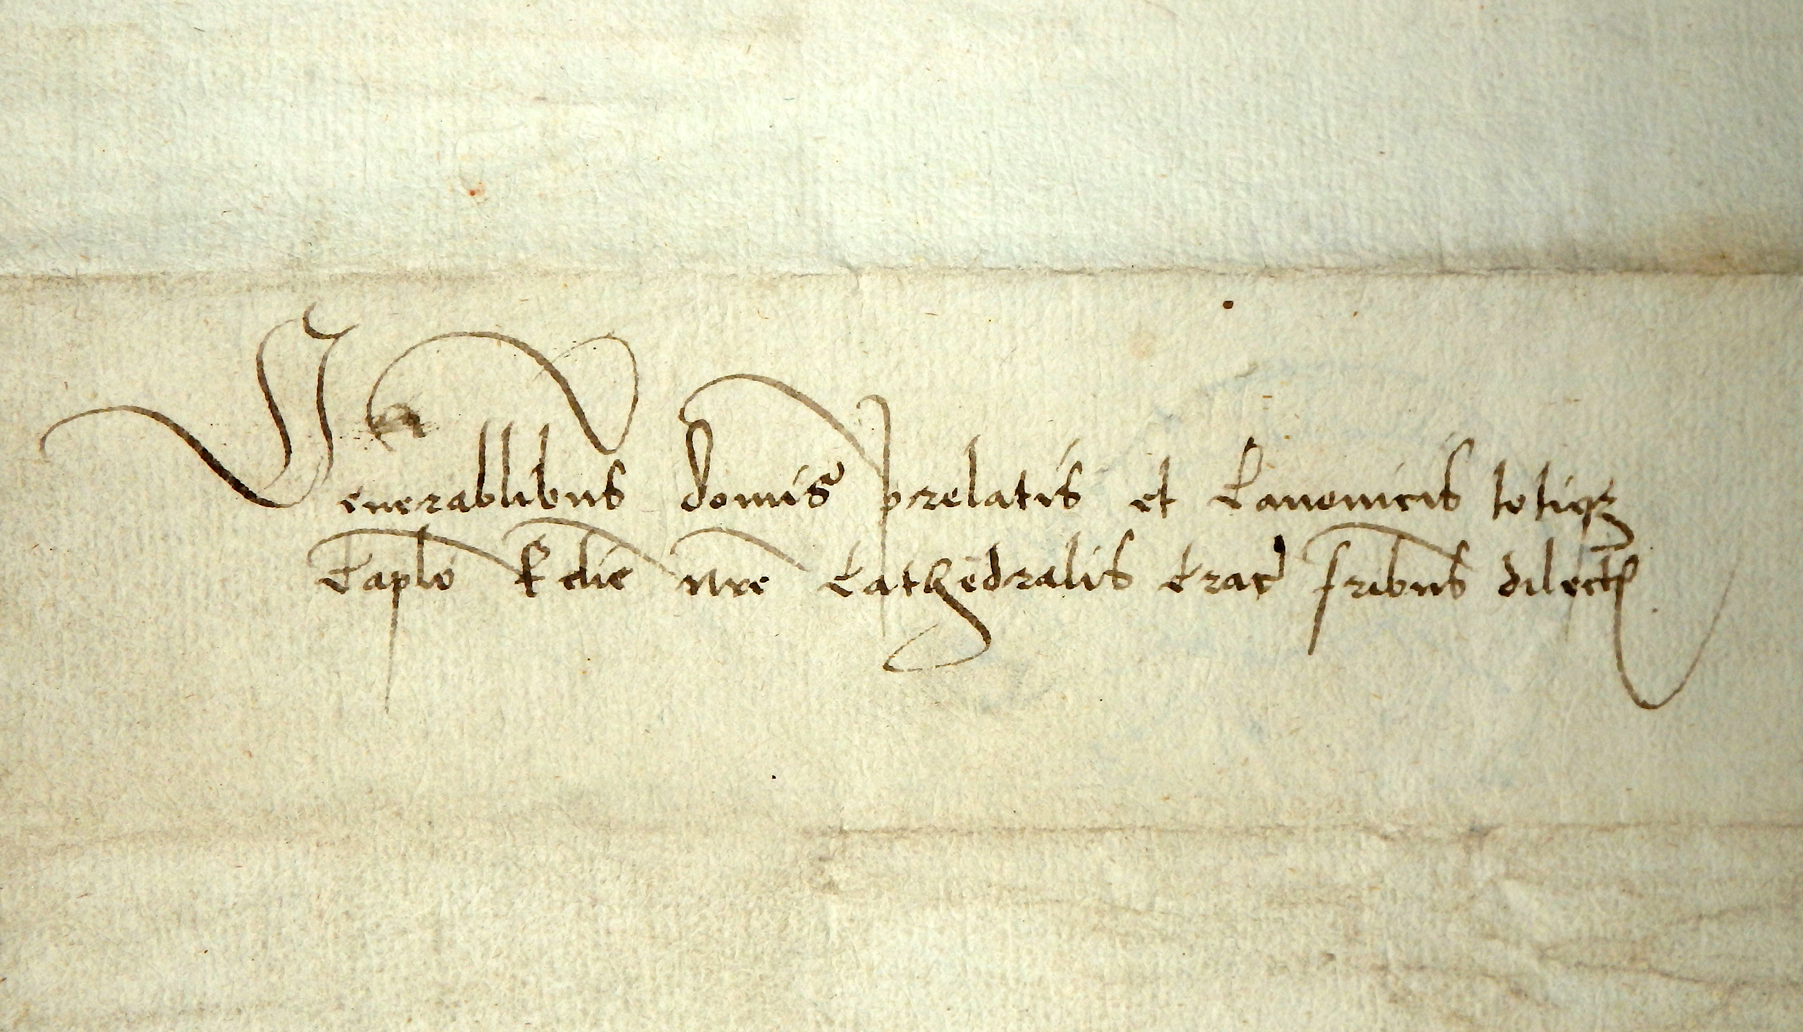 Venerabilibus domis prelatis et Canonicis totiqz
Caplo Ecclie nre Cathedralis Crac fribus dilect